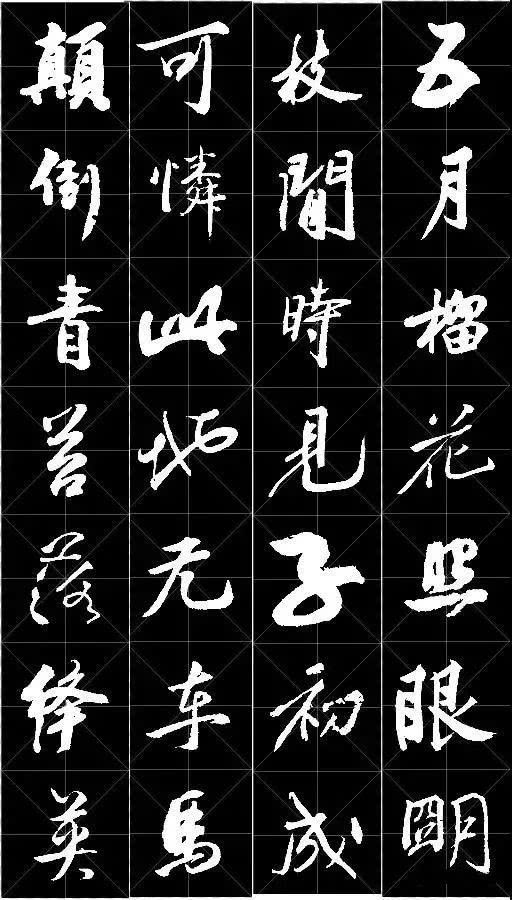 五月榴花照眼朙
枝間時見子初成
可憐此地无车馬
顛倒青苔落绛英